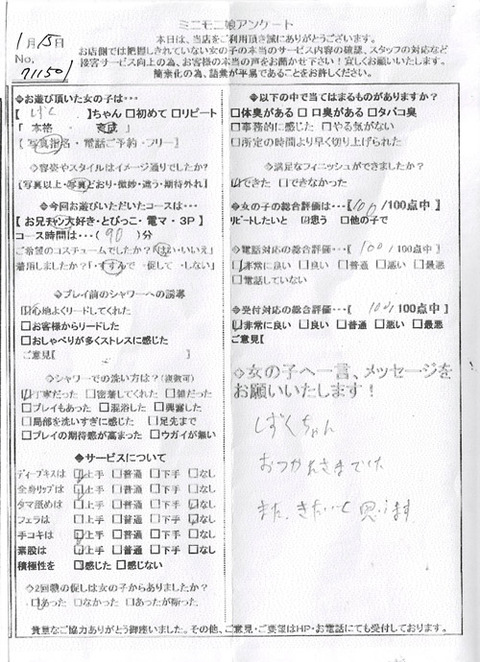 ミニモニ娘アンケート
1月15日
本日は、当店をご利用頂き誠にありがとうございます。
お店側では把握しきれていない女の子の本当のサービス内容の確認、スタッフの対応など
No.
接客サービス向上の為、お客様の本当の声をお聞かせ下さい!宜しくお願いいたします。
711501
簡素化の為、語彙が平易であることをお許しください。
◆お遊び頂いた女の子は…
【しずく】ちゃん □初めて □リピート
「本格・
写真指名・電話ご予約・フリー】
◇容姿やスタイルはイメージ通りでしたか?
【写真以上・写真どおり・微妙・違う・期待外れ】
◆今回お遊びいただいたコースは…
【お兄チャン大好き・とびっこ・電マ・3P】
コース時間は…(90)分
ご希望のコスチュームでしたか?「はい・いいえ」
着用しましたか?「・すすんで・促して・しない」
◇プレイ前のシャワーへの誘導
□心地よくリードしてくれた
□お客様からリードした
□おしゃべりが多くストレスに感じた
ご意見【 】
◇シャワーでの洗い方は?(複数可)
□丁寧だった □密着してくれた □雑だった
□プレイもあった □混浴した □興奮した
□局部を洗いすぎに感じた □足先まで
□プレイの期待感が高まった □ウガイが無い
◆サービスについて
ディープキスは □上手 □普通 □下手 □なし
全身リップは □上手 □普通 □下手 □なし
タマ舐めは □上手 □普通 □下手 □なし
フェラは □上手 □普通 □下手 □なし
手コキは □上手 □普通 □下手 □なし
素股は □上手 □普通 □下手 □なし
積極性を □感じた □感じない
◇2回戦の促しは女の子からありましたか?
□あった □なかった □あったが断った
◆以下の中で当てはまるものがありますか?
□体臭がある □口臭がある □タバコ臭
□事務的に感じた □やる気がない
□所定の時間より早く切り上げられた
◇満足なフィニッシュができましたか?
□できた □できなかった
◆女の子の総合評価は…【100/100点中】
リピートしたいと □思う □他の子で
◇電話対応の総合評価…(100/100点中)
□非常に良い □良い □普通 □悪い □最悪
□電話していない
◆受付対応の総合評価…【100/100点中】
□非常に良い □良い □普通 □悪い □最悪
ご意見【
◇女の子へ一言、メッセージを
お願いいたします!
しずくちゃん
おつかれさまでした
また、きたいと思います
貴重なご協力ありがとう御座いました。その他、ご意見・ご要望はHP・お電話にても受付しております。